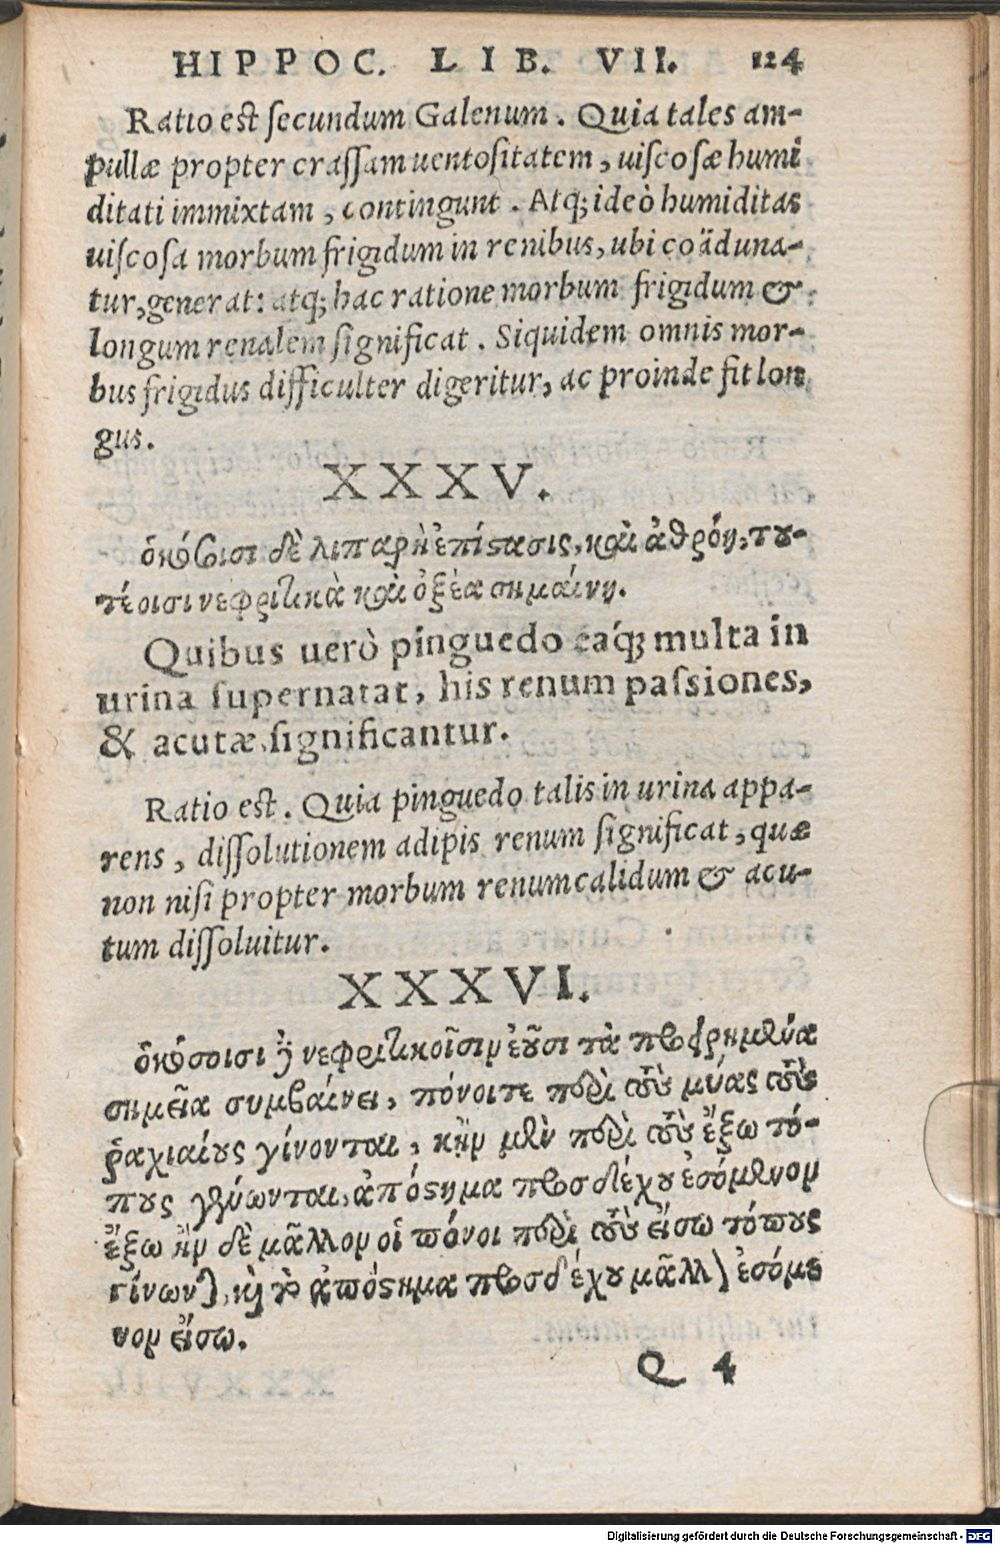 HIPPOC. LIB. VII. 124
Ratio est secundum Galenum. Quia tales am-
pullæ propter crassam uentositatem, uiscosæ humi
ditati immixtam, contingunt. Atq; ideò humiditas
uiscosa morbum frigidum in renibus, ubi coäduna-
tur, generat: atq; hac ratione morbum frigidum &
longum renalem significat. Siquidem omnis mor-
bus frigidus difficulter digeritur, ac proinde fit lon
gus.
XXXV.
ὁκόσοισι δὲ λιπαρὴ ἐπίστασις, καὶ ἀθρόη, του-
τέοισι νεφριτικὰ καὶ ὀξέα σημαίνη.
Quibus uerò pinguedo eaq́; multa in
urina supernatat, his renum passiones,
& acutæ significantur.
Ratio est. Quia pinguedo talis in urina appa-
rens, dissolutionem adipis renum significat, quæ
non nisi propter morbum renum calidum & acu-
tum dissoluitur.
XXXVI.
ὁκόσοισι ἢ νεφριτικοῖσιν ἐοῦσι τὰ προειρημένα
σημεῖα συμβαίνει, πόνοι τε περὶ τοὺς μύας τοὺς
ῥαχιαίους γίνονται, κἢν μὲν περὶ τοὺς ἔξω τό-
πους γένωνται, ἀπόστημα προσδέχου ἐσόμενον
ἔξω ἢν δὲ μᾶλλον οἱ πόνοι περὶ τοὺς εἴσω τόπους
γίνωνται, καὶ τὸ ἀπόστημα προσδέχου μᾶλλον ἐσόμε
νον εἴσω.
Q 4
Digitalisierung gefördert durch die Deutsche Forschungsgemeinschaft - DFG